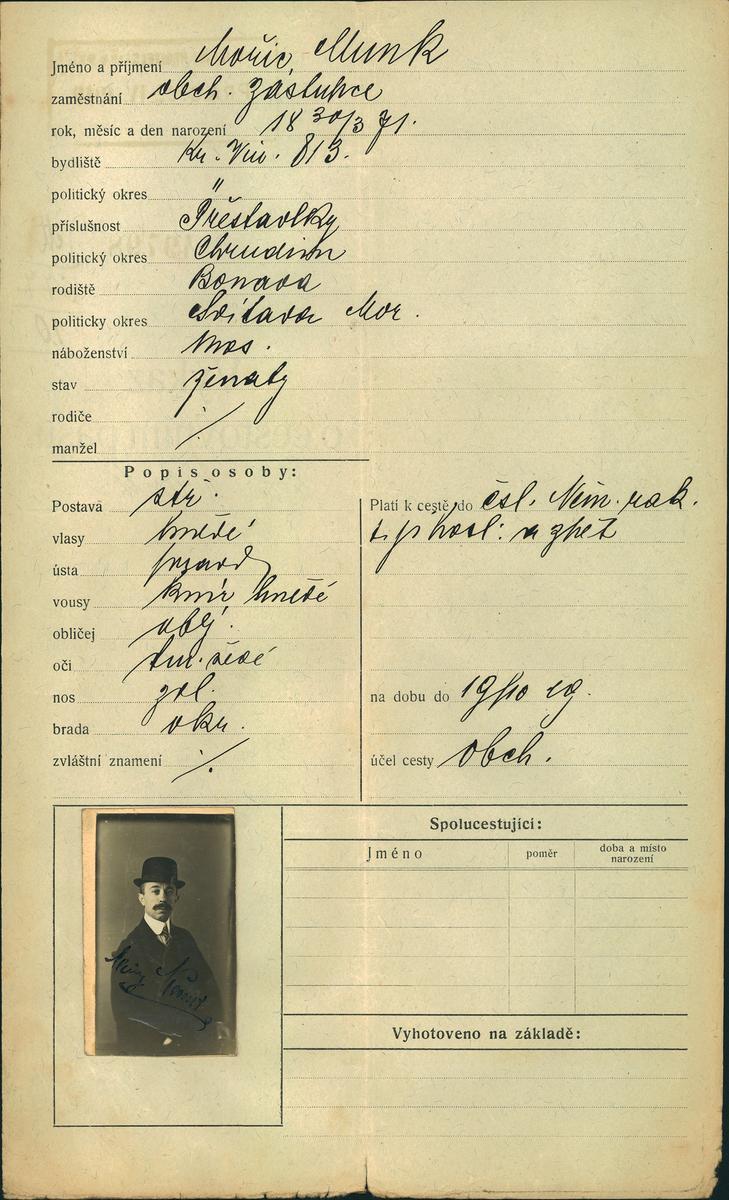 Jméno a příjmení Mořic Munk
zaměstnání obch. zástupce
rok, měsíc a den narození 18 30/3 71.
bydliště Kr. Vin. 813.
politický okres "
příslušnost Přestavlky
politický okres Chrudim
rodiště Bonava
politicky okres Svitava Mor.
náboženství mos.
stav ženatý
rodiče ./.
manžel
Popis osoby:
Postava stř.
vlasy hnědé
ústa
vousy knír hnědé
obličej obl.
oči tm. šedé
nos
brada okr.
zvláštní znamení ./.
Platí k cestě do čsl. Něm. rak.
a zpět
na dobu do 19/10 19.
účel cesty obch.
Spolucestující:
Jméno
poměr
doba a místo
narození
Vyhotoveno na základě: